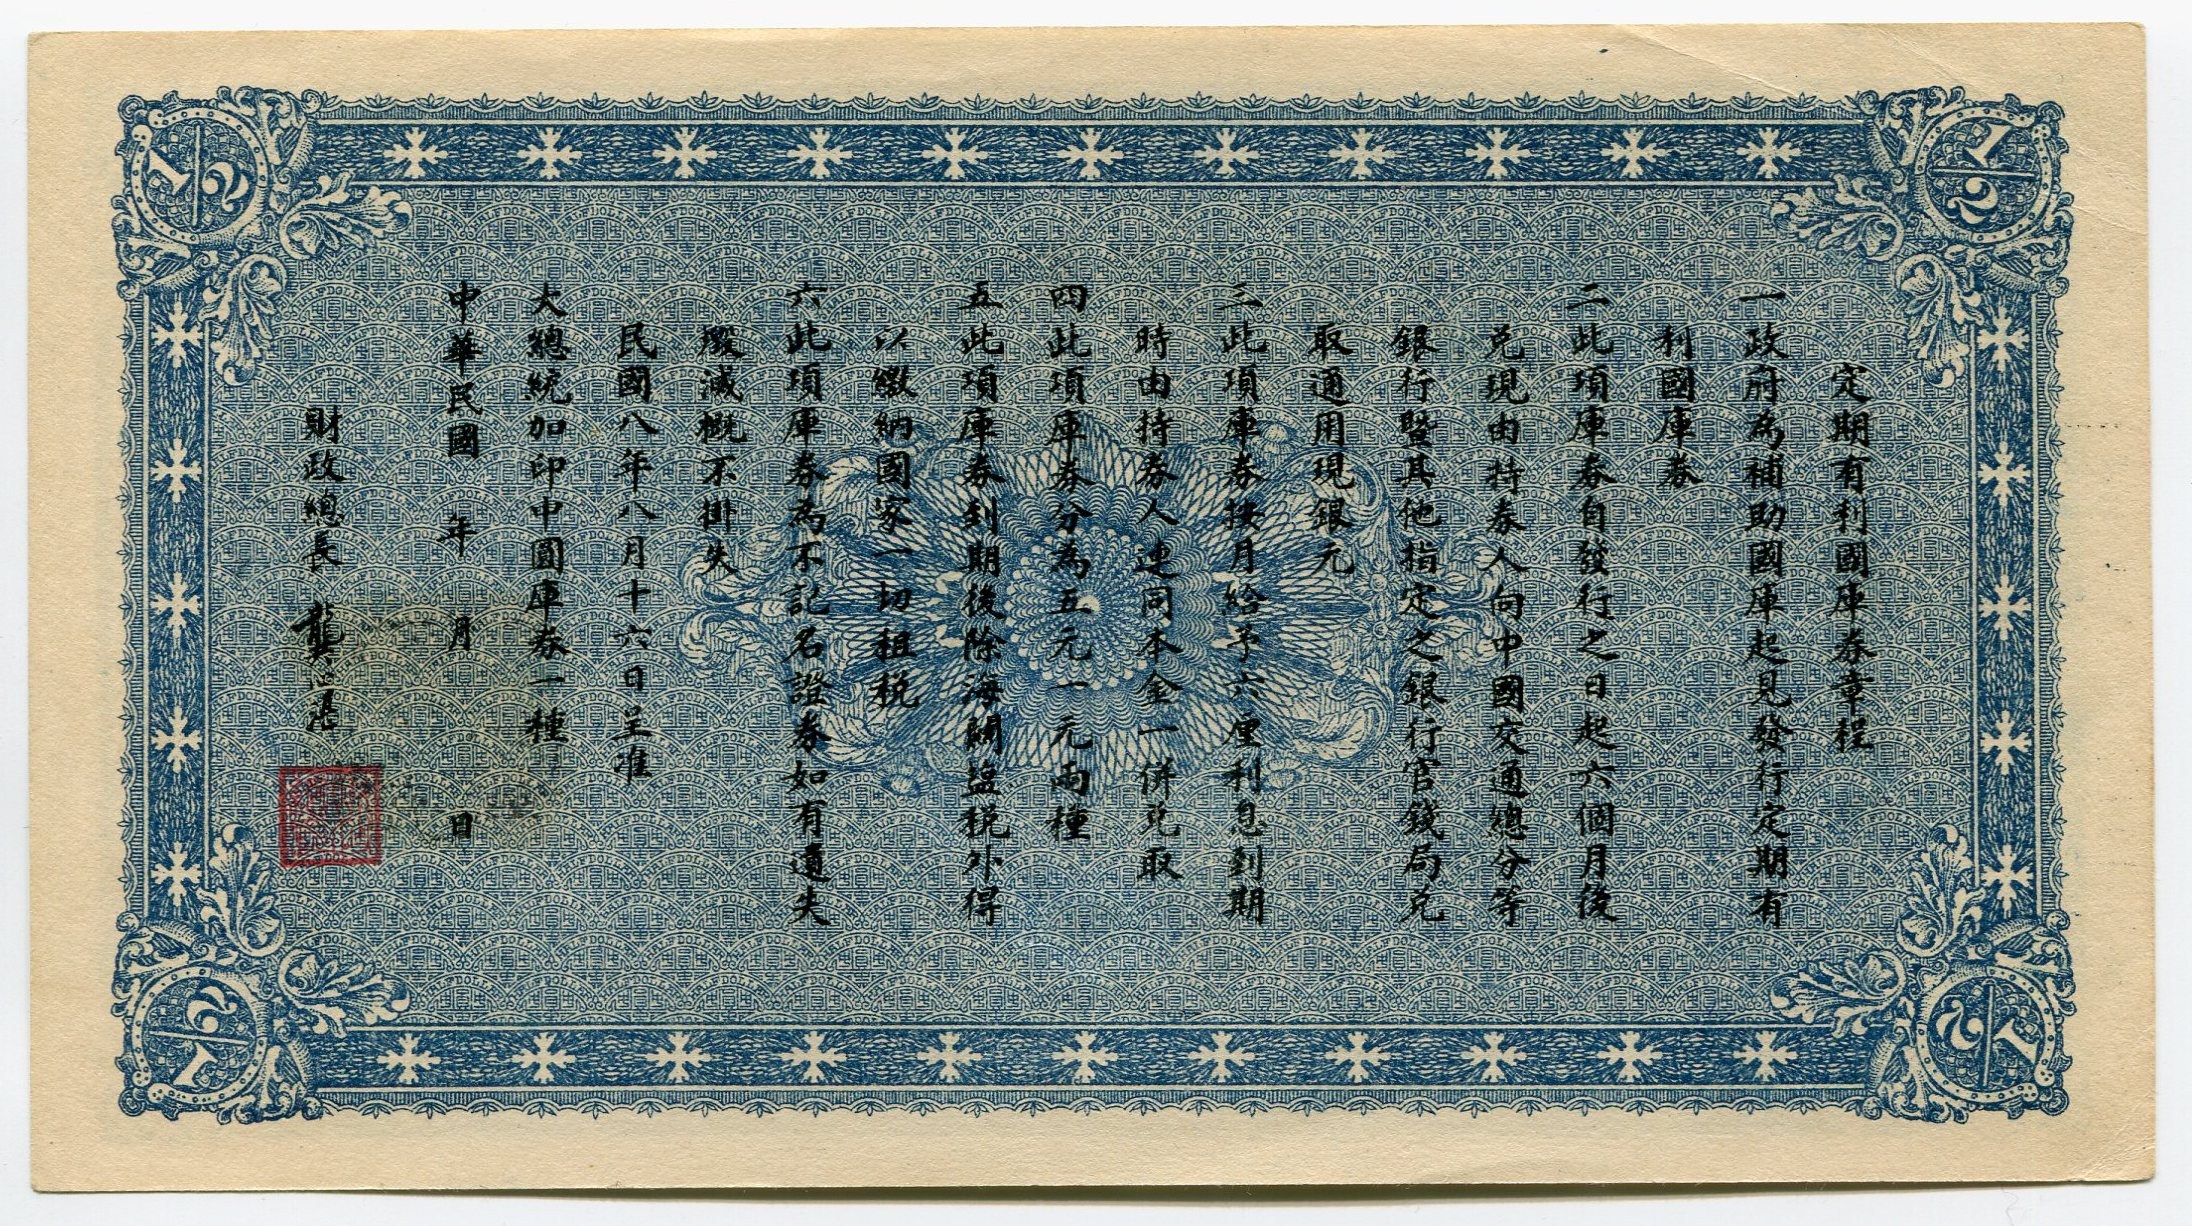 定期有利國庫券章程
一政府為補助國庫起見發行定期有
利國庫券
二此項庫券自發行之日起六個月後
兑現由持券人向中國交通總分等
銀行暨其他指定之銀行官錢局兑
取通用現銀元
三此項庫券按月給予六厘利息到期
時由持券人連同本金一併兑取
四此項庫券分為五元一元兩種
五此項庫券到期後除海關鹽税外得
以繳納國家一切租税
六此項庫券為不記名證券如有遺失
燬滅概不掛失
民國八年八月十六日呈准
大總統加印中國庫券一種
中華民國 年 月 日
財政總長 龔心湛
1/2
1/2
1/2
1/2
HALF DOLLAR